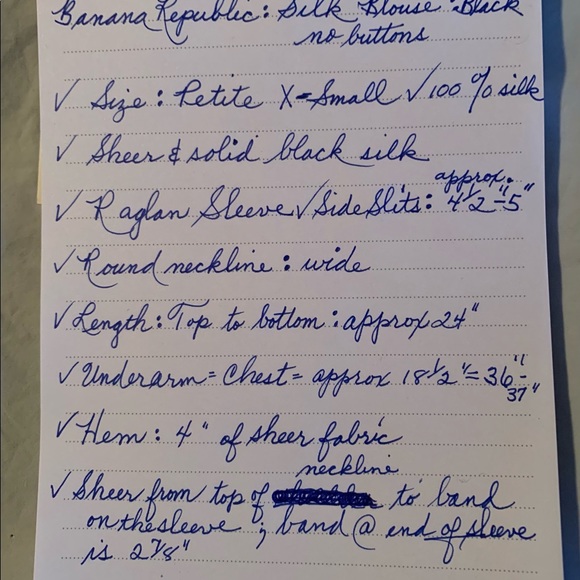 Banana Republic: Silk Blouse: Black
no buttons
√ Size: Petite X-Small √ 100% silk
√ Sheer & solid black silk
approx.
√ Raglan Sleeve √ Side Slits: 4 1/2"-5"
√ Round neckline: wide
√ Length: Top to bottom: approx 24"
√ Underarm = Chest = approx 18 1/2" = 36"-
37"
√ Hem: 4" of sheer fabric
neckline
√ Sheer from top of to band
on the sleeve; band @ end of sleeve
is 2 7/8"